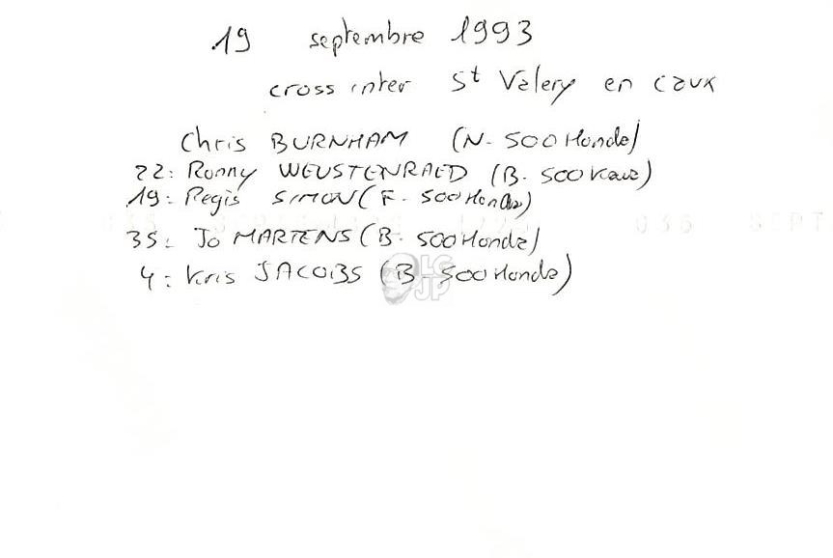 19 septembre 1993
cross inter St Valery en Caux
Chris BURNHAM (N. 500 Honda)
22: Ronny WEUSTENRAED (B. 500 Kawa)
19: Regis SIMON (F. 500 Honda)
35: Jo MARTENS (B. 500 Honda)
4: Kris JACOBS (B. 500 Honda)
LG
JP